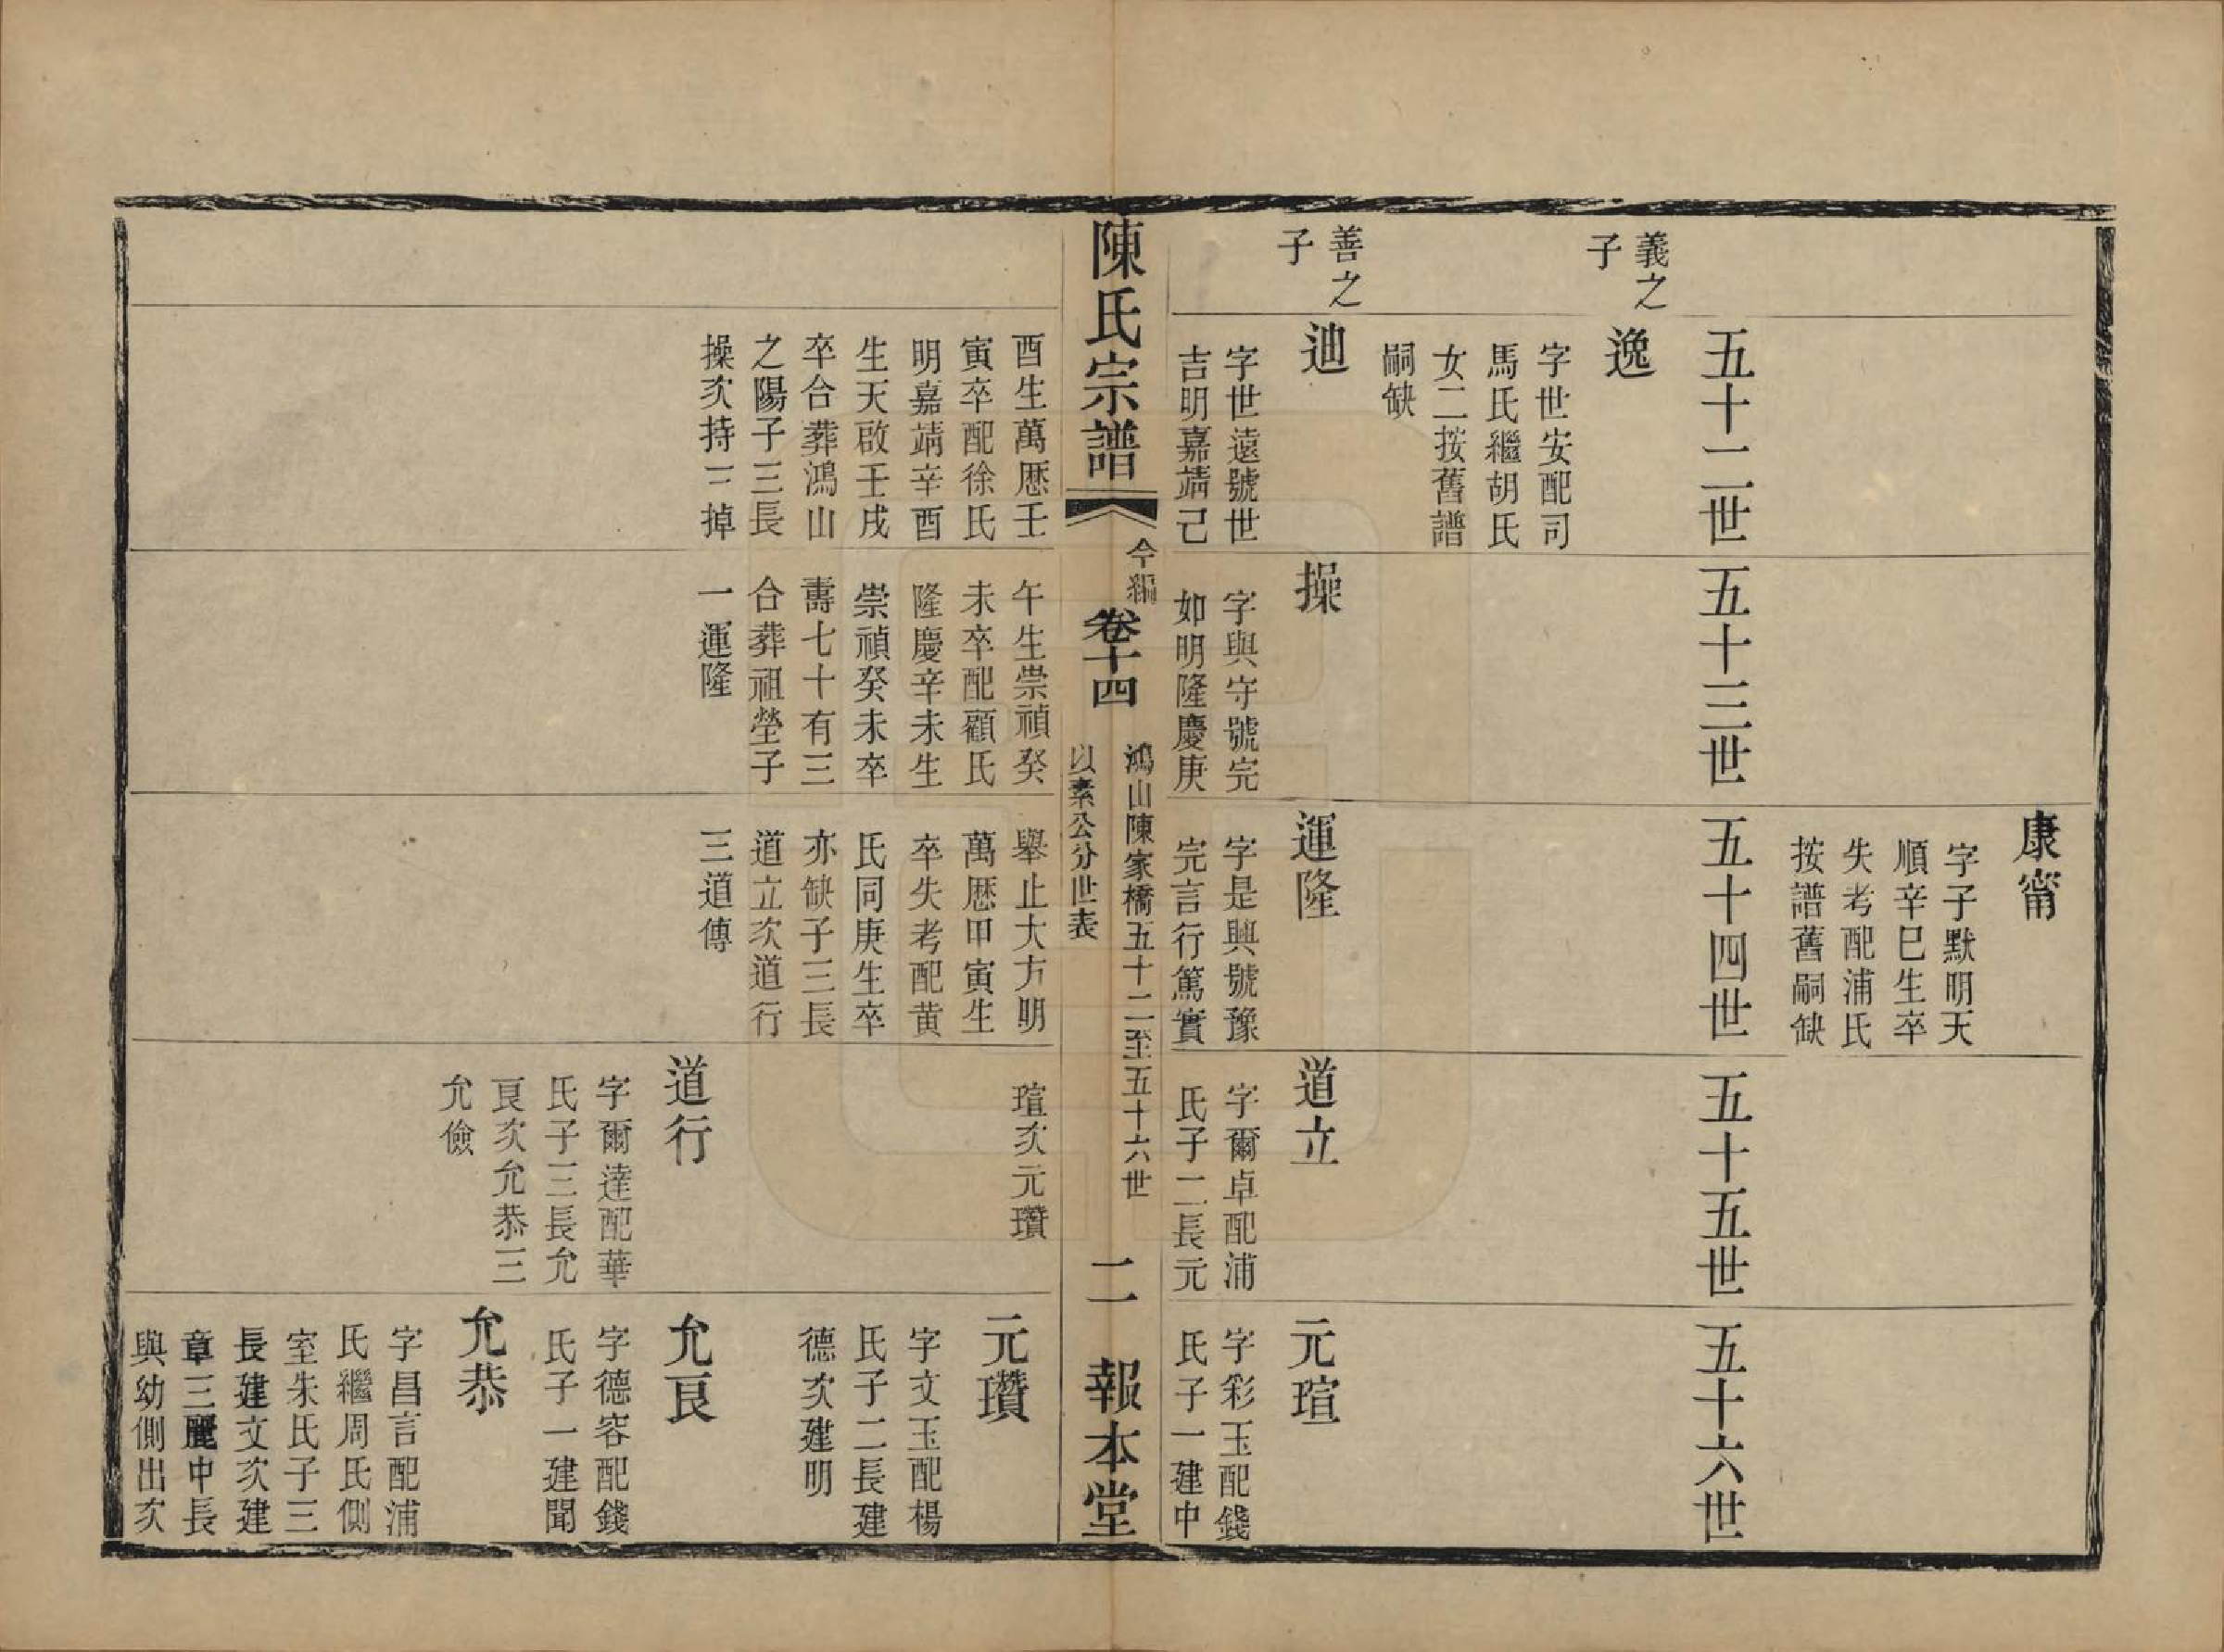 康甯
字子默明天
順辛巳生卒
失考配浦氏
按譜舊嗣缺
五十二世
五十三世
五十四世
五十五世
五十六世
義之
子
逸
字世安配司
馬氏繼胡氏
女二按舊譜
嗣缺
善之
子
迪
字世遠號世
吉明嘉靖己
操
字與守號完
如明隆慶庚
運隆
字是興號豫
完言行篤實
道立
字爾卓配浦
氏子二長元
元瑄
字彩玉配錢
氏子一建中
陳氏宗譜
今編
卷十四
鴻山陳家橋五十二至五十六世
以素公分世表
二
報本堂
酉生萬厯壬
寅卒配徐氏
明嘉靖辛酉
生天啟壬戌
卒合葬鴻山
之陽子三長
操次持三掉
午生崇禎癸
未卒配顧氏
隆慶辛未生
崇禎癸未卒
壽七十有三
合葬祖塋子
一運隆
舉止大方明
萬厯甲寅生
卒失考配黄
氏同庚生卒
亦缺子三長
道立次道行
三道傳
瑄次元瓚
道行
字爾達配華
氏子三長允
良次允恭三
允儉
元瓚
字文玉配楊
氏子二長建
德次建明
允良
字德容配錢
氏子一建聞
允恭
字昌言配浦
氏繼周氏側
室朱氏子三
長建文次建
章三麗中長
與幼側出次